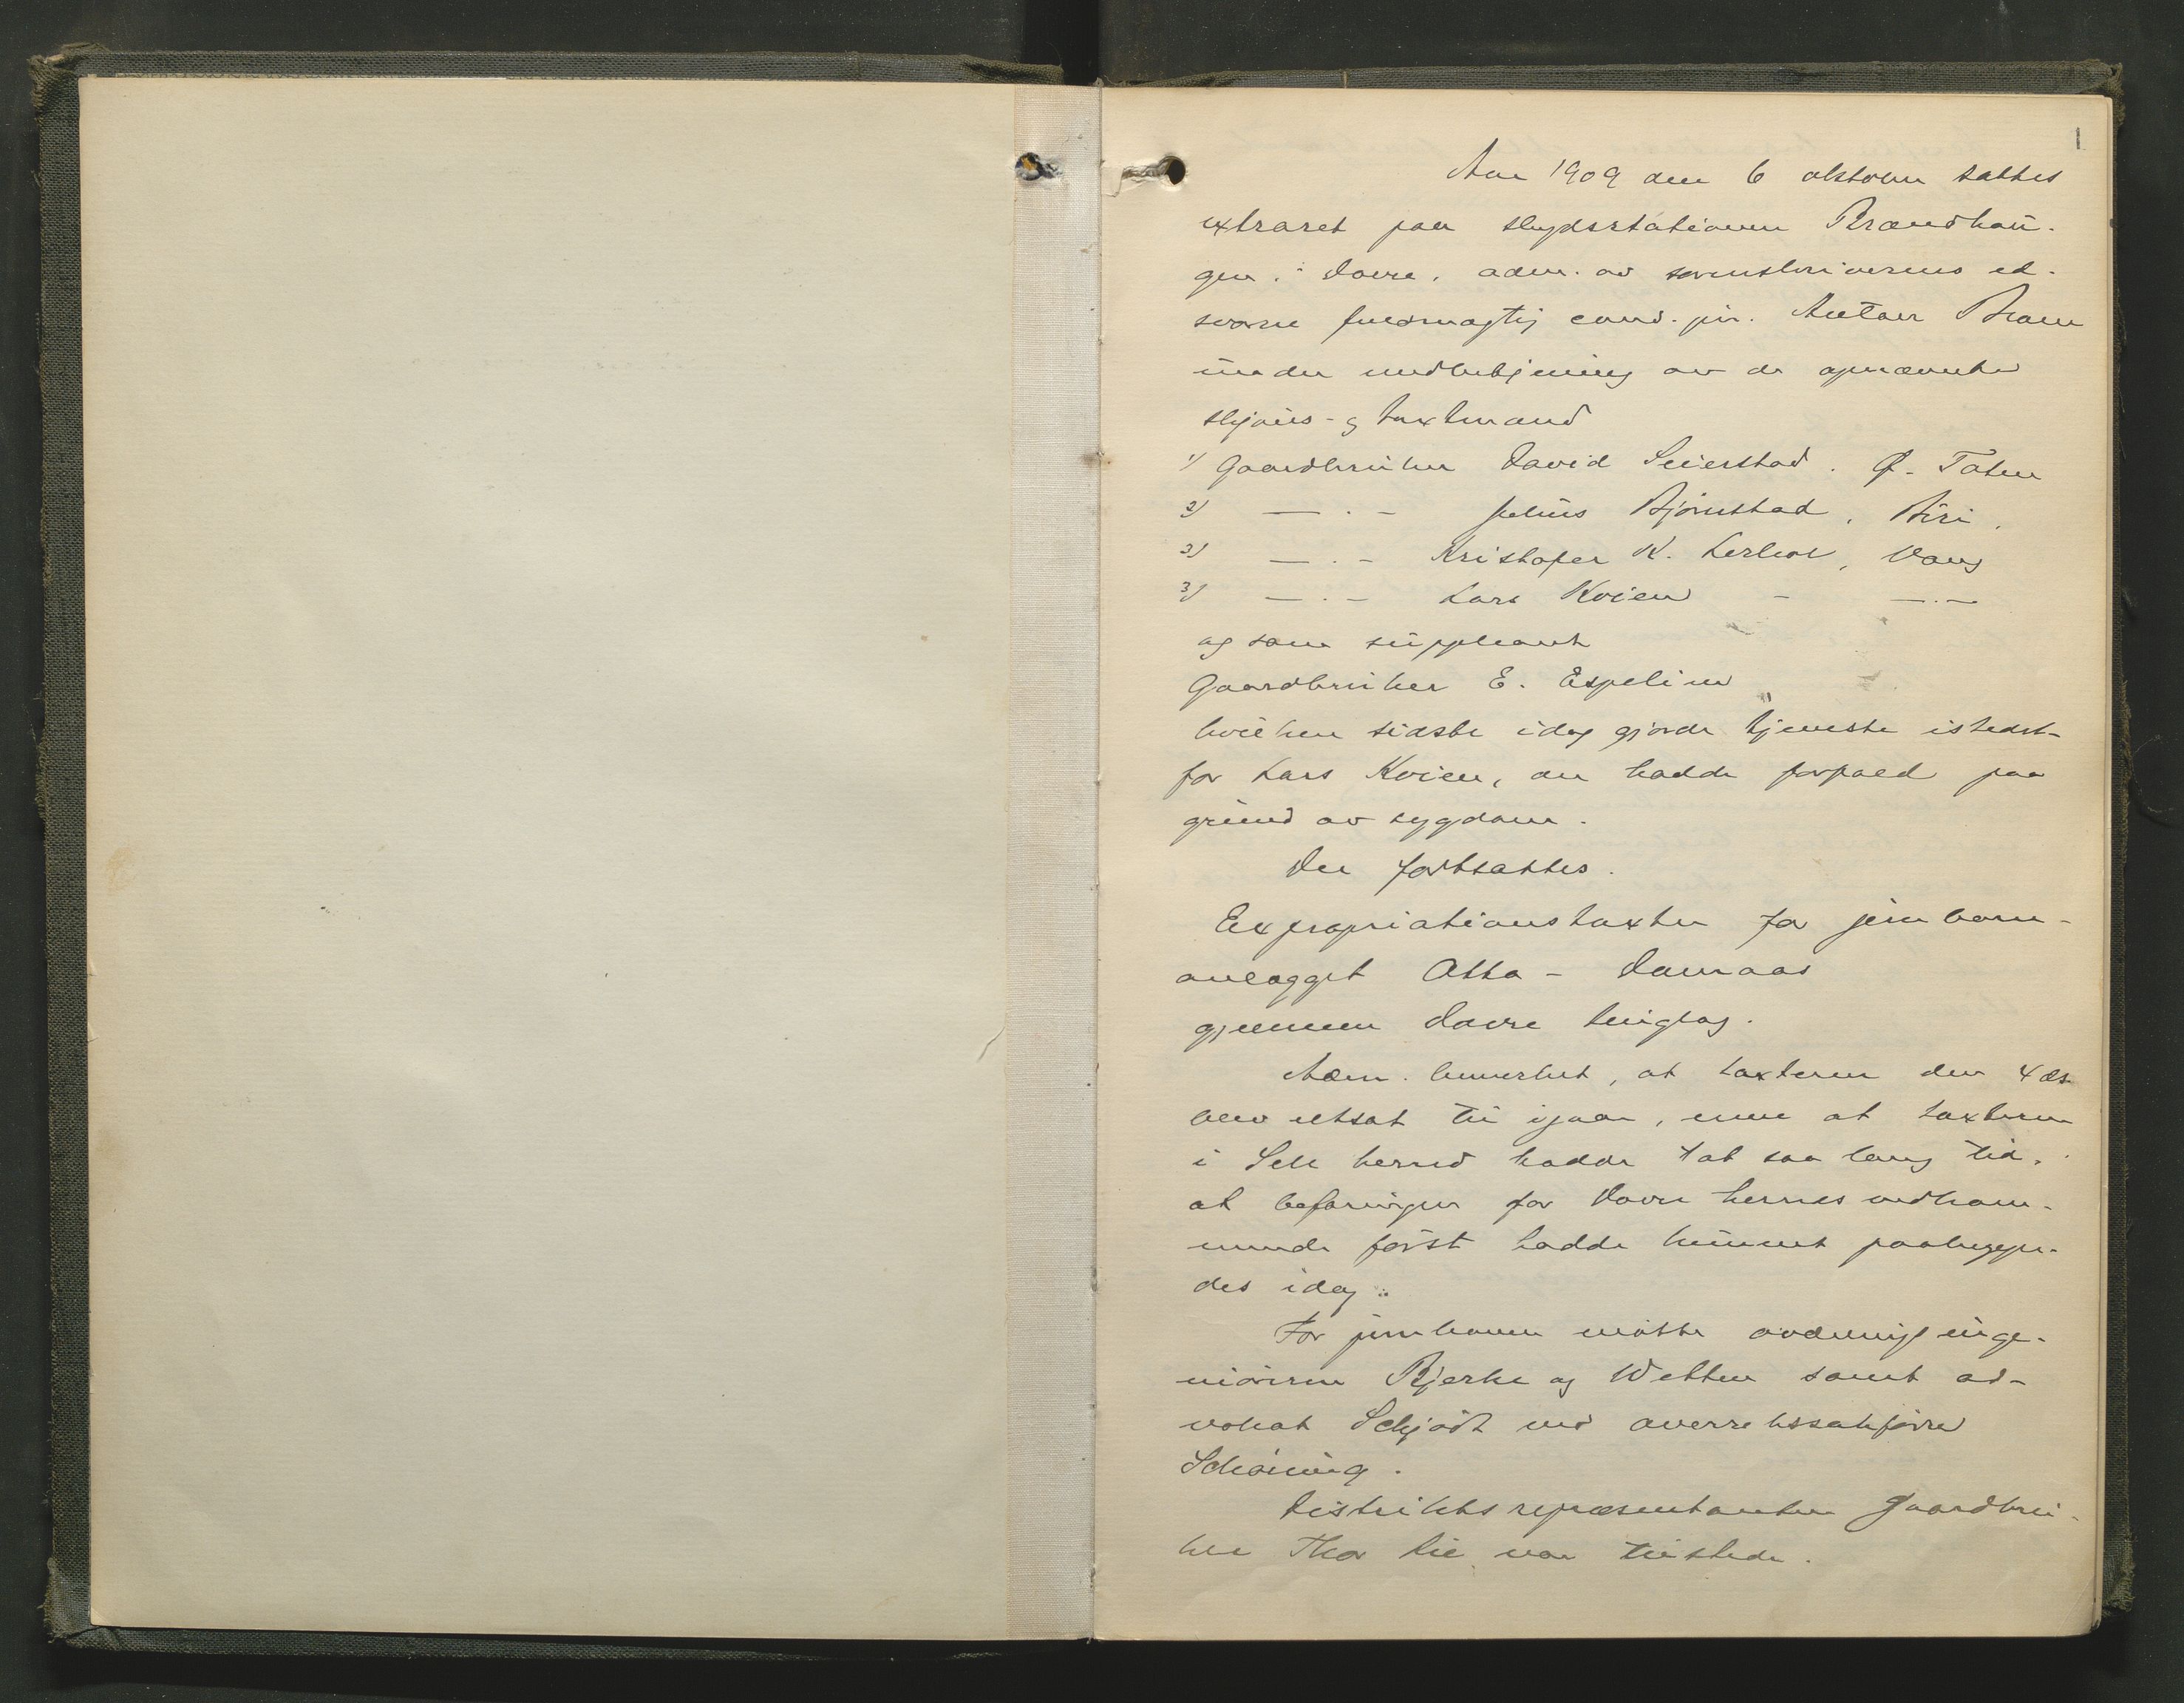 1
Aar 1909 den 6 oktober sattes
extraret paa skydsstationen Brændhau-
gen i Dovre, adm. av sorenskriverens ed-
svorne fuldmægtig cand. jur. Anton Bram
under medbetjening av de opnævnte
skjøns- og taxtmænd
1) Gaardbruker David Seierstad. Ø. Toten
2) — . - Julius Bjørnstad, Biri.
3) — . - Kristofer K. Lerhol, Vang
3) — . - Lars Kvien - —.—
og som suppleant
Gaardbruker E. Espelien
hvilken sidste idag gjorde tjeneste istedet-
for Lars Kvien, der hadde forfald paa
grund av sygdom.
Der fortsattes.
Expropriationstaxten for jernbane-
anlægget Otta - Dombaas
gjennem Dovre tinglag.
Adm. bemerket, at taxterne den 4 ds
blev utsat til igaar, men at taxterne
i Sell herred hadde tat saa lang tid,
at befaringen for Dovre herreds vedkom-
mende først hadde kunnet paabegyn-
des idag.
For jernbanen møtte avdelingsinge-
niørerne Bjerke og Wetten samt ad-
vokat Schjødt ved overretssakfører
Schøning.
Distriktsrepræsentanten gaardbru-
ker Thor Lie var tilstede.